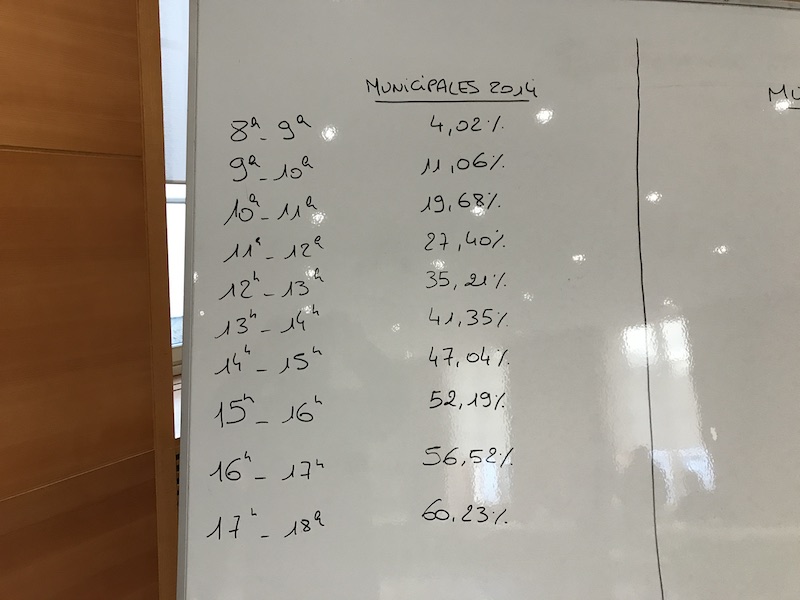 MUNICIPALES 2014
8h - 9h 4,02%
9h - 10h 11,06%
10h - 11h 19,68%
11h - 12h 27,40%
12h - 13h 35,21%
13h - 14h 41,35%
14h - 15h 47,04%
15h - 16h 52,19%
16h - 17h 56,52%
17h - 18h 60,23%